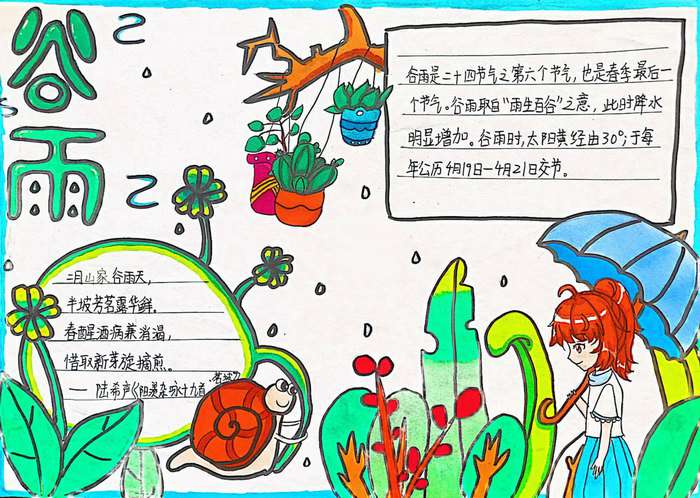 谷雨
谷雨是二十四节气之第六个节气，也是春季最后
一个节气。谷雨取自“雨生百谷”之意，此时降水
明显增加。谷雨时，太阳黄经由30°；于每
年公历4月19日—4月21日交节。
二月山家谷雨天，
半坡芳茗露华鲜。
春醒酒病兼消渴，
借取新芽旋摘煎。
—— 陆希声《阳羡杂咏十九首·茗坡》